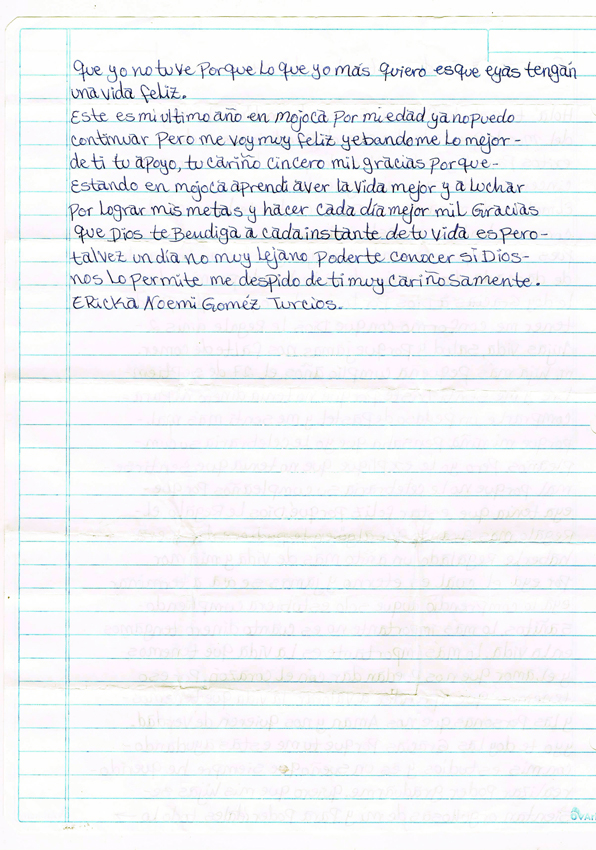 que yo no tuve Porque Lo que yo más quiero es que eyas tengan
una vida feliz.
Este es mi ultimo año en mojoca Por mi edad ya no puedo
continuar Pero me voy muy feliz yebandome Lo mejor-
de ti tu apoyo, tu cariño cincero mil gracias porque-
Estando en mojoca aprendi aver la vida mejor y a luchar
Por lograr mis metas y hacer cada día mejor mil Gracias
que Dios te Bendiga a cada instante de tu vida espero-
talvez un dia no muy Lejano Poderte conocer si Dios-
nos Lo permite me despido de ti muy cariñosamente.
ERicka Noemi Goméz Turcios.